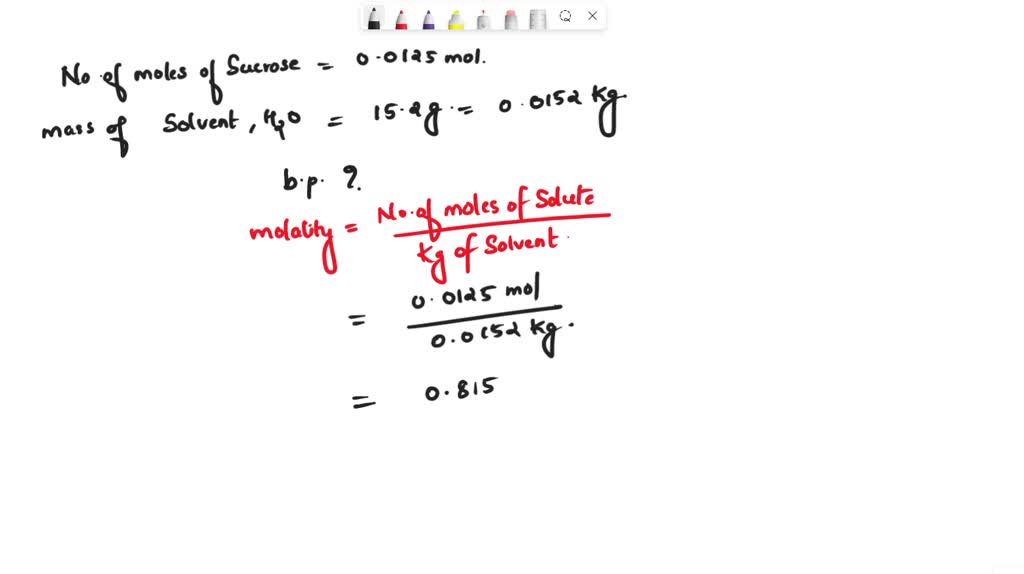 No. of moles of Sucrose = 0.0125 mol.
mass of Solvent, H2O = 15.2g = 0.0152 Kg
b.p. ?
molality = No. of moles of Solute
Kg of Solvent.
= 0.0125 mol
0.0152 Kg.
= 0.815